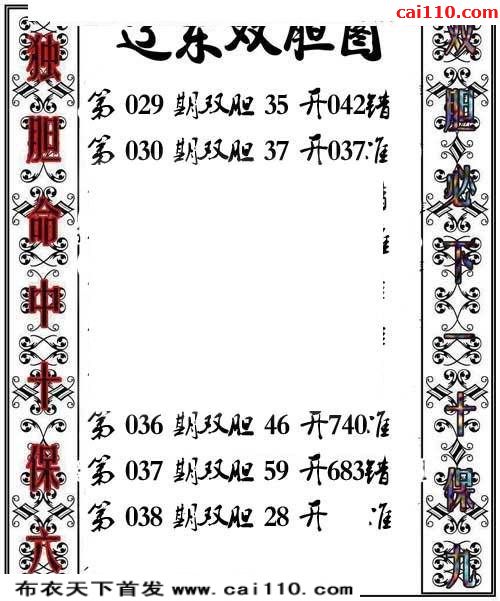 cai110.com
辽东双胆图
独胆命中十保六
双胆必下一十保九
第 029 期双胆 35 开042错
第 030 期双胆 37 开037准
第 036 期双胆 46 开740准
第 037 期双胆 59 开683错
第 038 期双胆 28 开 准
布衣天下首发 www.cai110.com